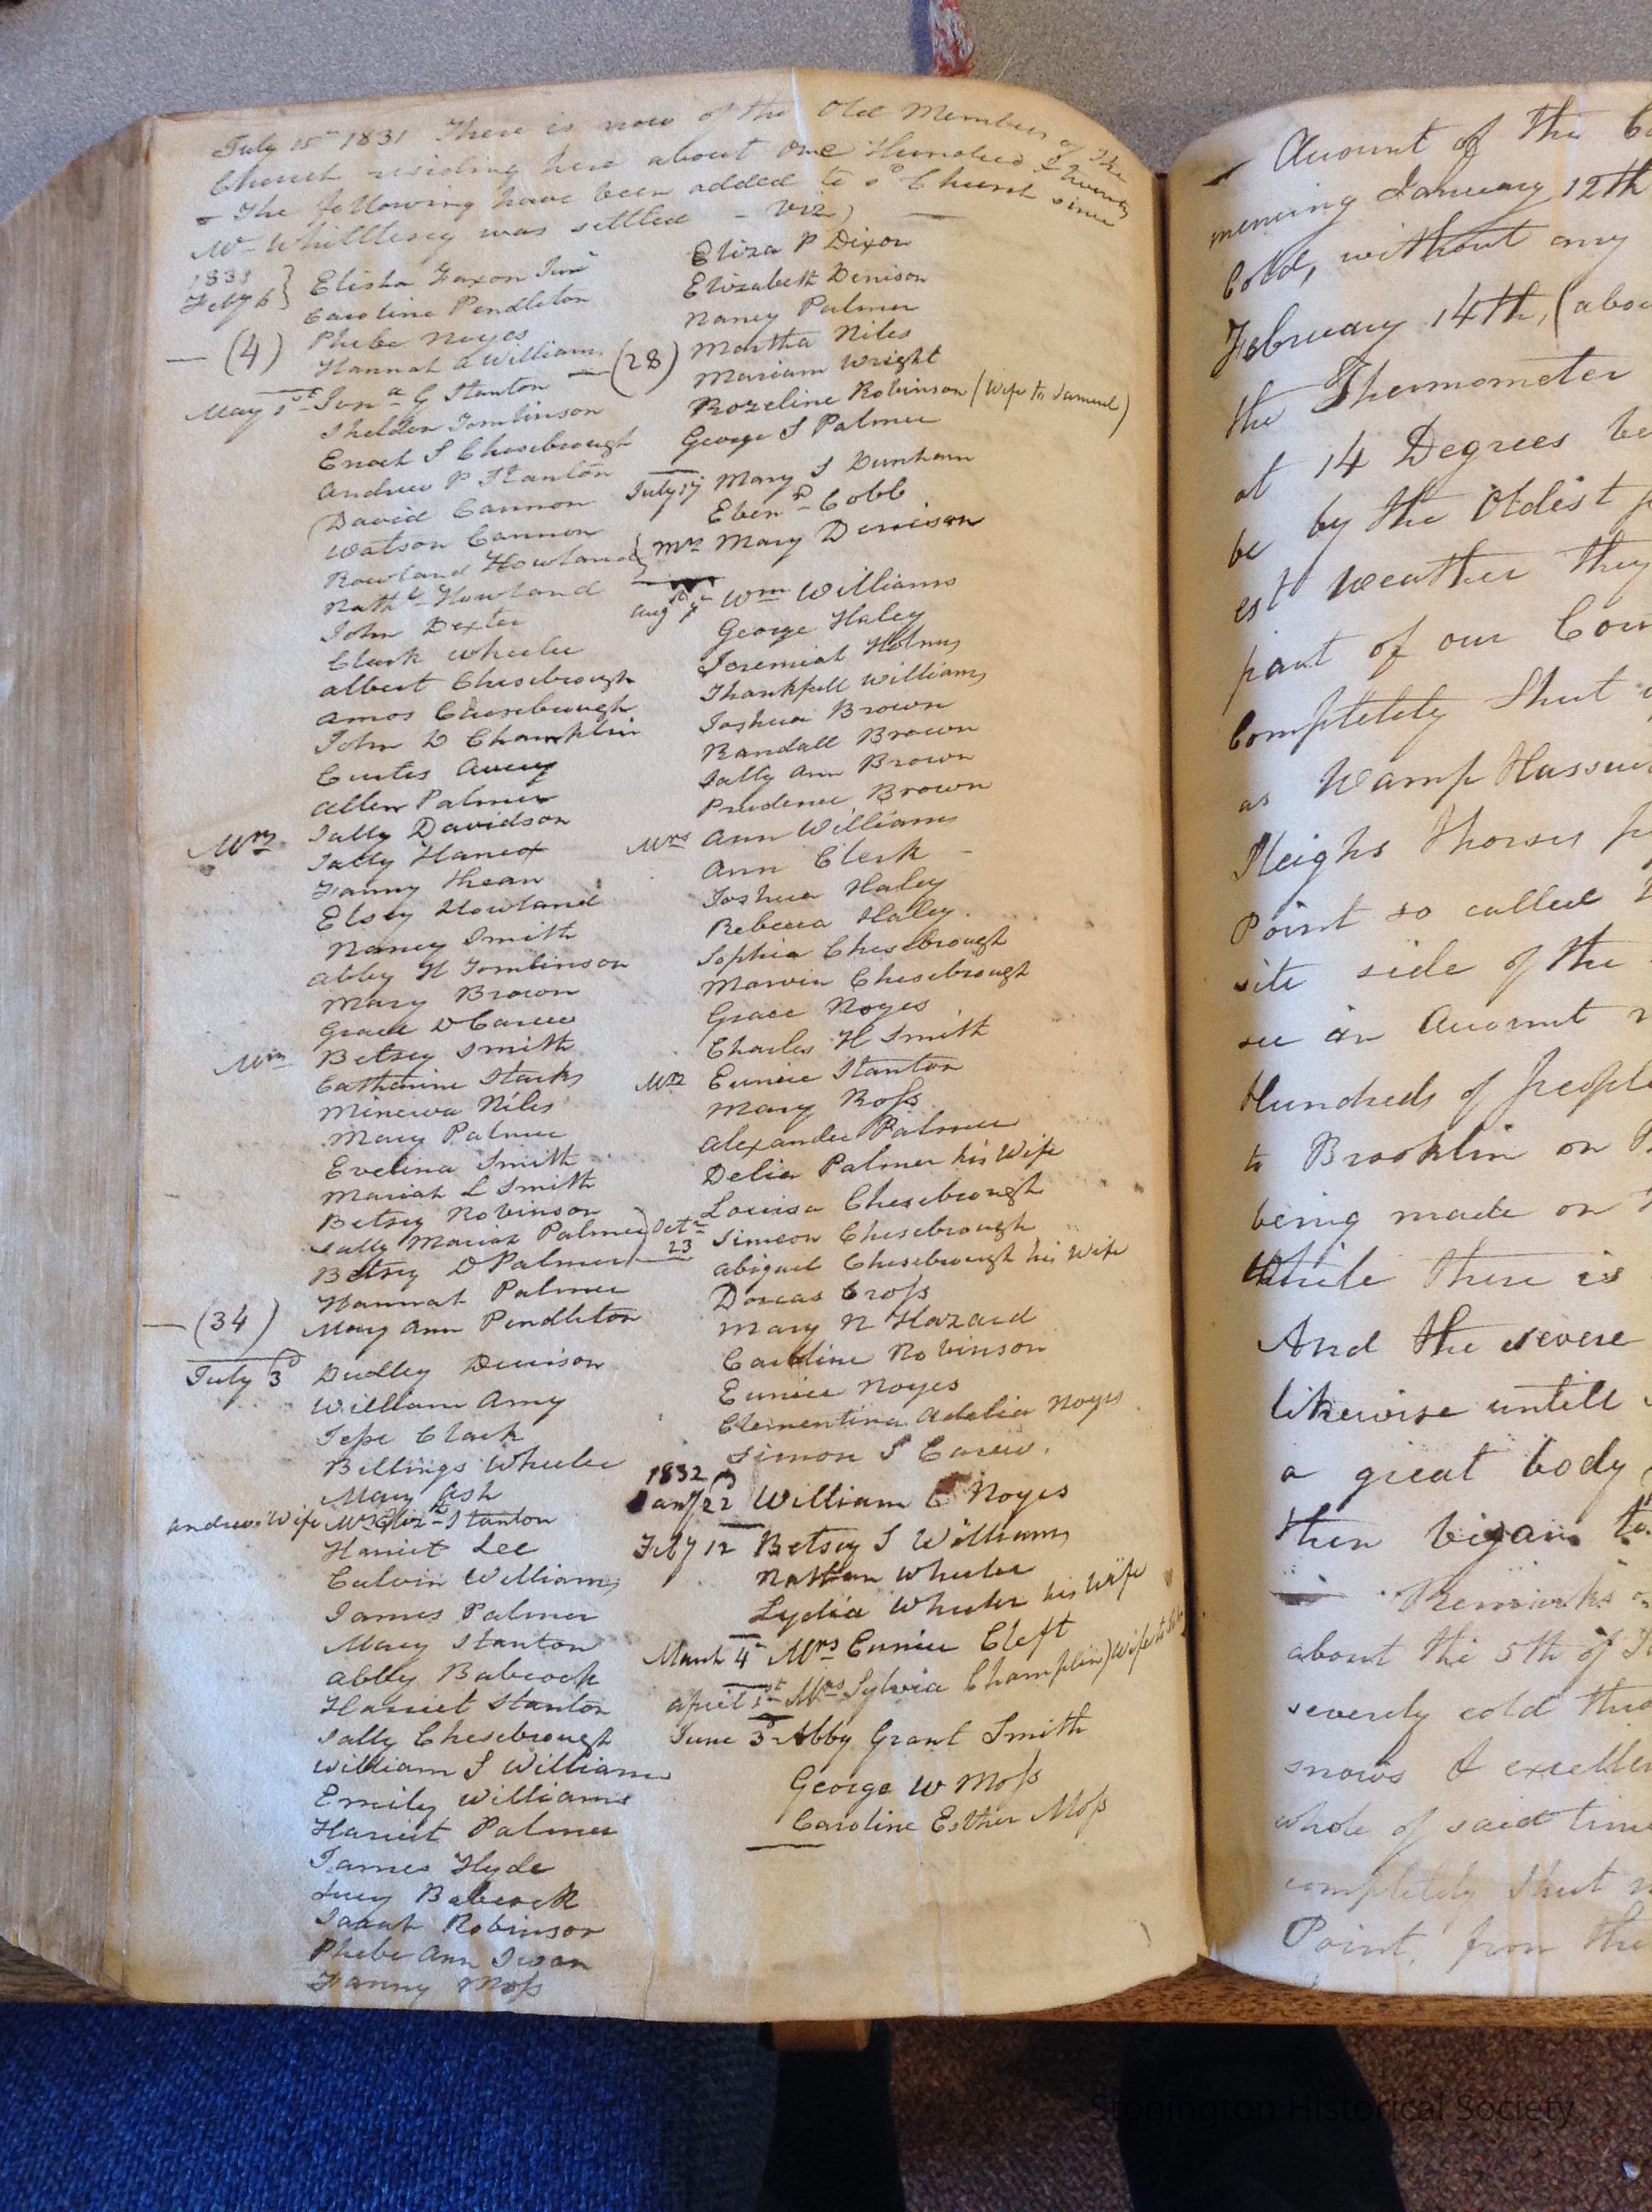 July 15th 1831 There is now of the Old Members of the
Church residing here about One Hundred & twenty
- The following have been added to sd Church since
Mr Whittlesey was settled - Viz)
1831
Feby 6 } Elisha Faxon Junr
Caroline Pendleton
Phebe Noyes
— (4) Hannah A Williams
May 1st Jona G Stanton
Sheldon Tomlinson
Enoch S Chesebrough
Andrew P Stanton
David Cannon
Watson Cannon
Rowland Howland
Nathl Howland
John Dexter
Clark Wheeler
Albert Chesebrough
Amos Chesebrough
John D Champlin
Curtis Avery
Allen Palmer
Mrs Sally Davidson
Sally Hancox
Fanny
Elsey Howland
Nancy Smith
Abby H Tomlinson
Mary Brown
Grace D Carew
Mrs Betsey Smith
Catherine Starks
Minerva Niles
Mary Palmer
Evelina Smith
Mariah L Smith
Betsey Robinson
Sally Mariah Palmer
Betsey D Palmer
Hannah Palmer
— (34) Mary Ann Pendleton
July 3d Dudley Denison
William Amy
Jesse Clark
Billings Wheeler
Mary Ash
Andrews Wife Mrs Elizth Stanton
Harriet Lee
Calvin Williams
James Palmer
Mary Stanton
Abby Babcock
Harriet Stanton
Sally Chesebrough
William S Williams
Emily Williams
Harriet Palmer
James Hyde
Lucy Babcock
Sarah Robinson
Phebe Ann Swan
Fanny Moss
Eliza P Dixon
Elizabeth Denison
Nancy Palmer
— (28) Martha Niles
Mariam Wright
Rozeline Robinson (Wife to Samuel)
George S Palmer
July 17 Mary S Dunham
Ebenr Cobb
Mrs Mary Denison
Augst 7th Wm Williams
George Haley
Jeremiah Holmes
Thankfull Williams
Joshua Brown
Randall Brown
Sally Ann Brown
Prudence Brown
Mrs Ann Williams
Ann Clerk —
Joshua Haley
Rebecca Haley
Sophia Chesebrough
Marvin Chesebrough
Grace Noyes
Charles H Smith
Mrs Eunice Stanton
Mary Ross
Alexander Palmer
Delia Palmer his Wife
Louisa Chesebrough
Octr 23 Simeon Chesebrough
Abigail Chesebrough his Wife
Dorcas Cross
Mary N Hazard
Caroline Robinson
Eunice Noyes
Clementina Adelia Noyes
Simon S Carew.
1832
Jany 22 William C Noyes
Feby 12 Betsey S Williams
Nathan Wheeler
Lydia Wheeler his Wife
March 4th Mrs Eunice Cleft
April 1st Mrs Sylvia Champlin) Wife to
June 3d Abby Grant Smith
George W Moss
Caroline Esther Moss
Account of the
mencing January 12th
Cold, without any
February 14th, (abou
the Thermometer
at 14 Degrees be
be by the Oldest
est weather they
part of our
Completely Shut
as Wamp Hassuc
Sleighs Horses
Point so called
site side of the
see an Account
Hundreds of people
to Brooklin on
being made on
While there is
And the severe
likewise untill
a great body
then began to
Remarks
about the 5th of
severely cold thro
snows & excellen
whole of said time
completely shut
Point, from the
Stonington Historical Society